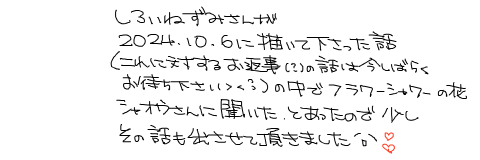 しろいねずみさんが
2024.10.6に描いて下さった話
(これに対するお返事(?)の話は今しばらく
お待ち下さい><;)の中でフラワーシャワーの花
シャオウさんに聞いた、とあったので少し
その話も出させて頂きました'ω'